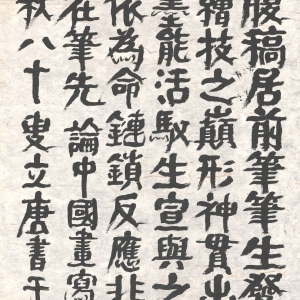 腹稿居前筆筆生發
技之巔形神貫出
墨能活馭生宣與之
依為命鏈鎖反應非
在筆先 論中國畫寫
秋八十叟立唐書于